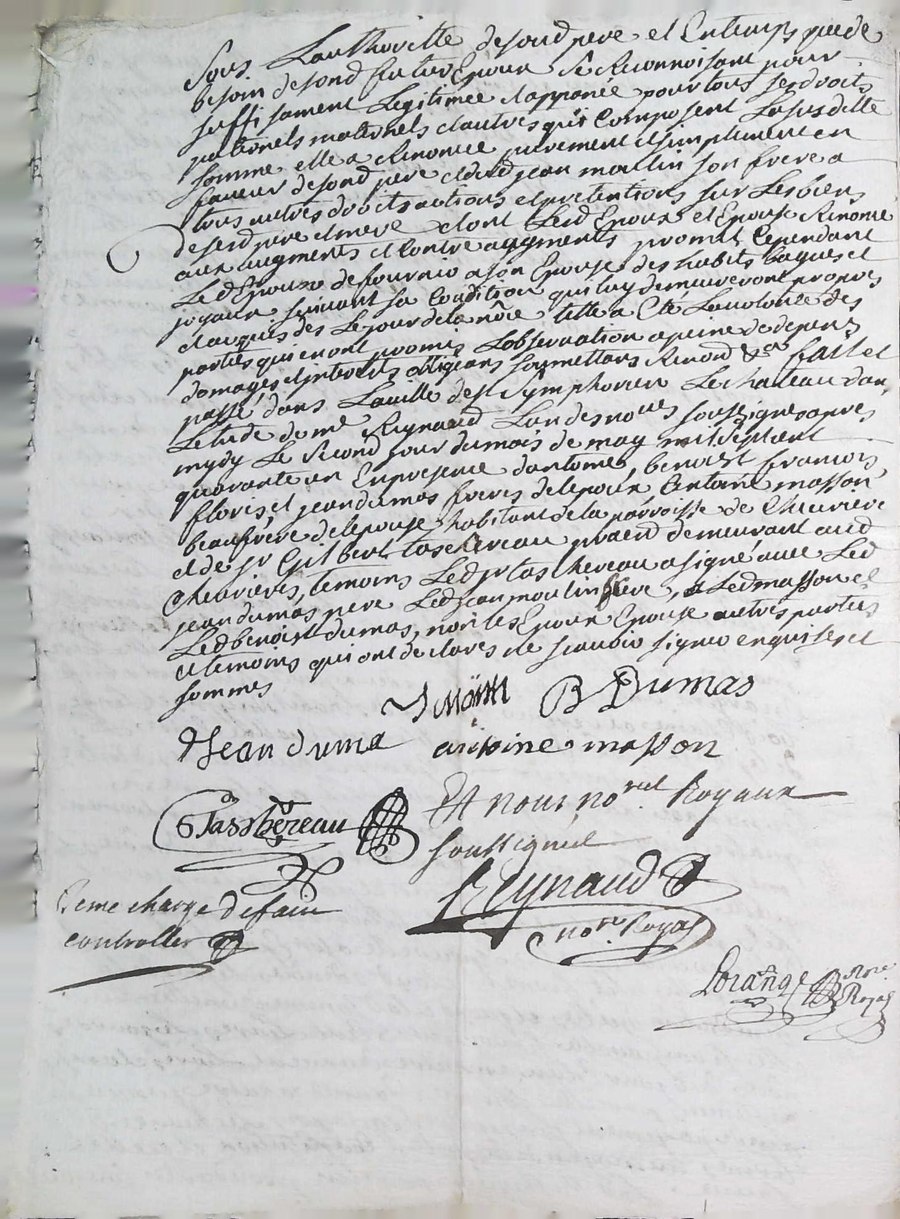 Sous Lauthoritte desond pere et Entemps que de
besoin desond futur Epoux Se Reconnoisant pour
suffisament Legitimee et appanée pour tous ses droits
paternels maternels et autres qui Composent La susditte
somme elle a Renoncé purement et simplement en
faveur desond pere et dud jean moulin son frere a
tous autres droits actions et pretentions sur Les biens
desesd pere et mere et dont Lesd Epoux et Epouse Renonce
aux augments et Contre augments promet Cependant
Led Epoux de fournir a son Epouse des habits bagues et
joyaux suivant sa Condition qui luy demeureront propres
et acquis des Le jour de la nôce telle a Eté La volonté des
parties qui en ont promes L'observation a peine de depens
domages et interets obligeans soumettans Renond &a fait et
passé dans La ville de st Symphorien Le chateau dan
Letude de me Reynaud Lun des nores soussignes apres
mydy Le Second jour du mois de may mil sept cent
quarante un En presence dantoine, benoist francois,
floris, et jean dumas freres de lepoux antoine masson
beaufrere de lepouse habitant de la parroisse de Chevriere
et de sr Gilbert taschereau praticn demeurant aud
Chevrieres, temoins Led sr taschereau a signé avec Led
jean dumas pere Led jean moulin frere, Led masson et
Led benoist dumas, non les Epoux Epouse autres parties
et temoins qui ont declarés ne scavoir signer enquis et
sommes
J Mölin B Dumas
Jean duma antoine masson
G Taschereau Et nous nores Royaux
soussignés
Reynaud
nore Royal
2eme chargé de faire
controller
Lorange nore
Royal